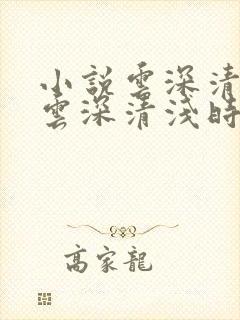 小說雲深清
雲深清淺時
高家龍